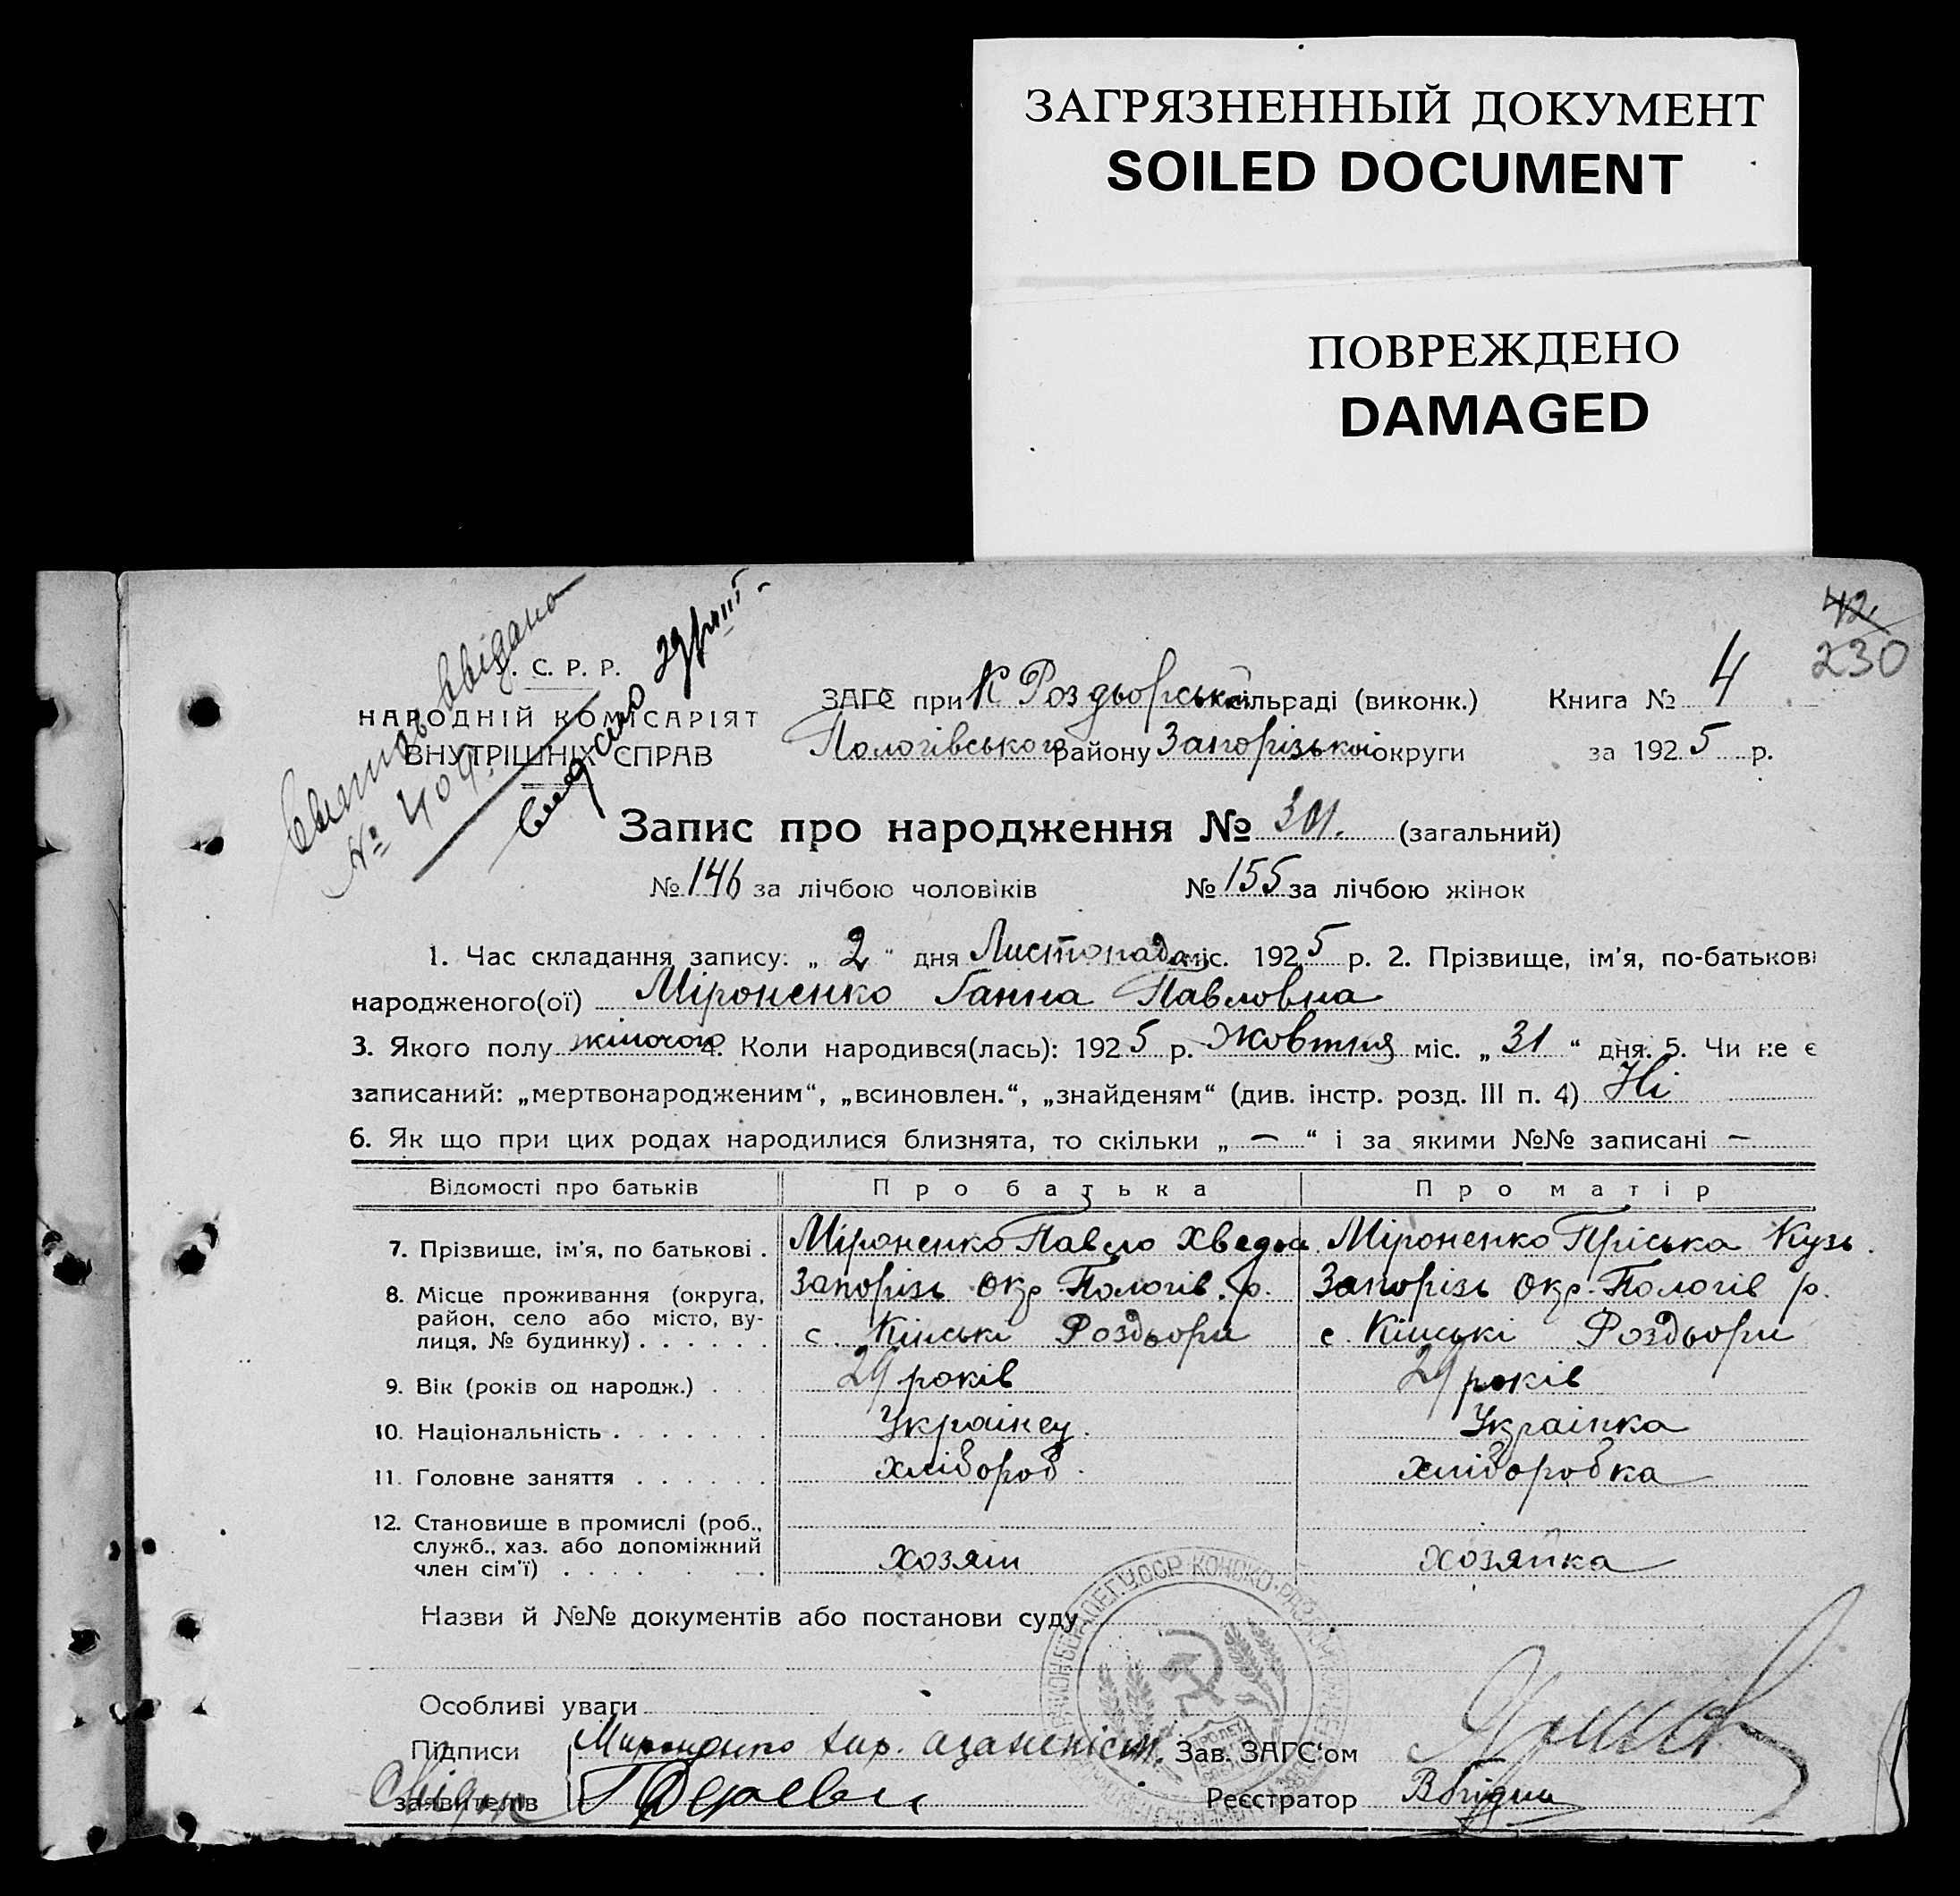 ЗАГРЯЗНЕННЫЙ ДОКУМЕНТ
SOILED DOCUMENT
ПОВРЕЖДЕНО
DAMAGED
42
230
С. Р. Р.
НАРОДНІЙ КОМІСАРІЯТ
ВНУТРІШНІХ СПРАВ
№ 409.
ЗАГС при К Роздьорській сільраді (виконк.) Книга № 4
Пологівського району Запорізькоі округи за 1925 р.
Запис про народження № 301. (загальний)
№ 146 за лічбою чоловіків № 155 за лічбою жінок
1. Час складання запису: „ 2 " дня Листопада міс. 1925 р. 2. Прізвище, ім'я, по-батькові
народженого(ої) Міроненко Ганна Павловна
3. Якого полу жіночого 4. Коли народився(лась): 1925 р. Жовтня міс. „ 31 " дня. 5. Чи не є
записаний: „мертвонародженим", „всиновлен.", „знайденям" (див. інстр. розд. III п. 4) Ні
6. Як що при цих родах народилися близнята, то скільки „ — " і за якими №№ записані —
Відомості про батьків Про батька Про матір
7. Прізвище, ім'я, по батькові . Міроненко Павло Хведьо Міроненко Пріська Кузь.
8. Місце проживання (округа, Запорізь окр. Пологів. р. Запорізь окр. Пологів р.
район, село або місто, ву-
лиця, № будинку) . . . . . . с. Кінські Роздьори с. Кінські Роздьори
9. Вік (років од народж.) . . . 29 років 29 років
10. Національність . . . . . . . Украінец. Украінка
11. Головне заняття . . . . . . хлібороб. хліборобка
12. Становище в промислі (роб.,
служб., хаз. або допоміжний
член сім'ї) . . . . . . хозяін хозяйка
Назви й №№ документів або постанови суду
Особливі уваги
Підписи
заявителів
Зав. ЗАГС'ом
Реєстратор